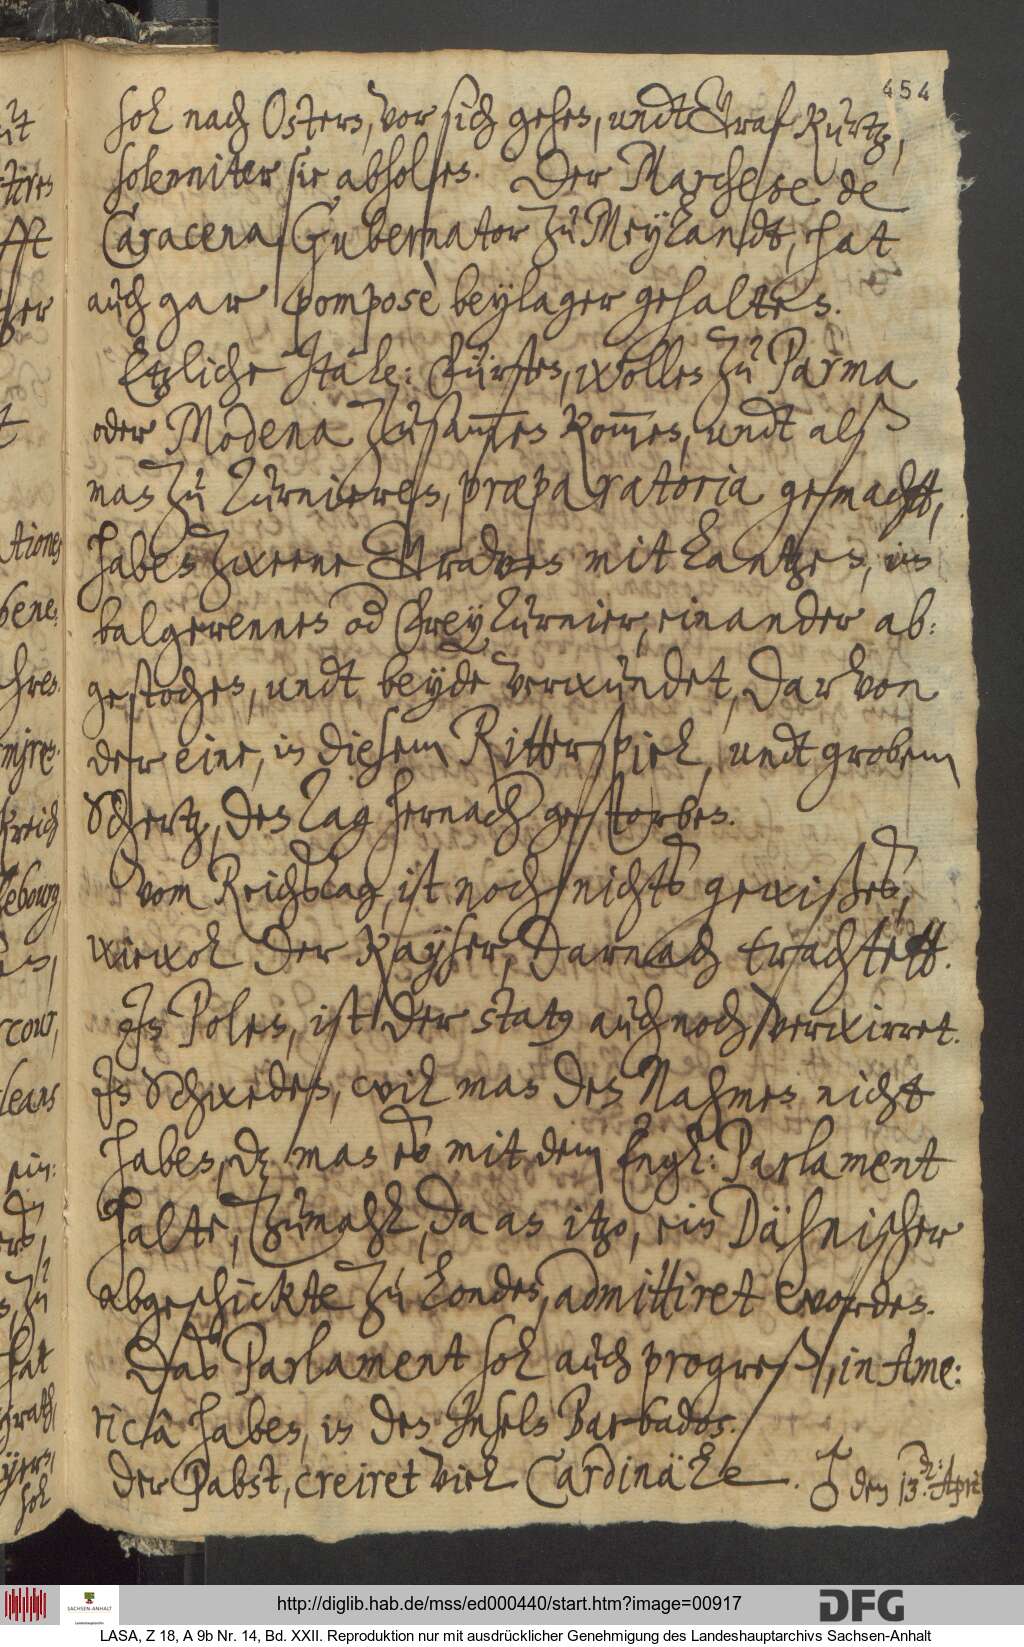 454
sol nach Ostern, vor sich gehen, undt Graf Kurtz,
solenniter sie abholen. Der Marchese de
Caracena, Gubernator zu Meylandt, hat
auch gar pomposè beylager gehalten.
Etzliche Itale: Fürsten, wollen zu Parma
oder Modena zusam̄en kom̄en, undt alß
man zu Turnieren, præparatoria gemacht,
haben zweene Graven mit Lantzen, im
balgerennen od Frey Turnier, einander ab:
gestochen, undt beyde verwundet, Darvon
der eine, in diesem Ritterspiel, undt grobem
Schertz, den Tag hernach gestorben.
Vom Reichstag, ist noch nichts gewißes,
wiewol der Kayser, Darnach trachtett.
In Polen, ist der statg auch noch verwirret.
In Schweden, wil man den Nahmen nicht
haben, dz man es mit dem Engl: Parlament
halte, Zumahl, da an itzo, ein Dähnischer
abgeschickte zu Londen, admittiret worden.
Das Parlament sol auch progreß, in Ame:
ricâ haben, in den Inseln Barbados.
Der Pabst, creiret viel Cardinäle. ♂ den 13. Apr:
tiones
hren
reich
cour,
leans
ein:
hat
sol
http://diglib.hab.de/mss/ed000440/start.htm?image=00917
SACHSEN-ANHALT
DFG
LASA, Z 18, A 9b Nr. 14, Bd. XXII. Reproduktion nur mit ausdrücklicher Genehmigung des Landeshauptarchivs Sachsen-Anhalt